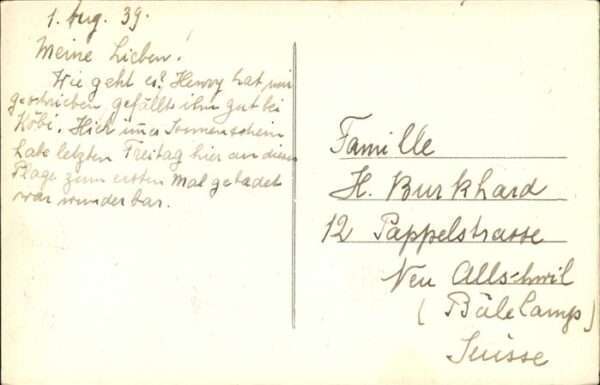 1. Aug. 39.
Meine Lieben!
Wie geht es? Henry hat mir
geschrieben, gefällts ihm gut bei
Köbi. Hier immer Sonnenschein
habe letzten Freitag hier an dieser
Plage zum ersten Mal gebadet
war wunderbar.
Famille
H. Burkhard
12 Pappelstrasse
Neu Allschwil
(Bâle Camp)
Suisse